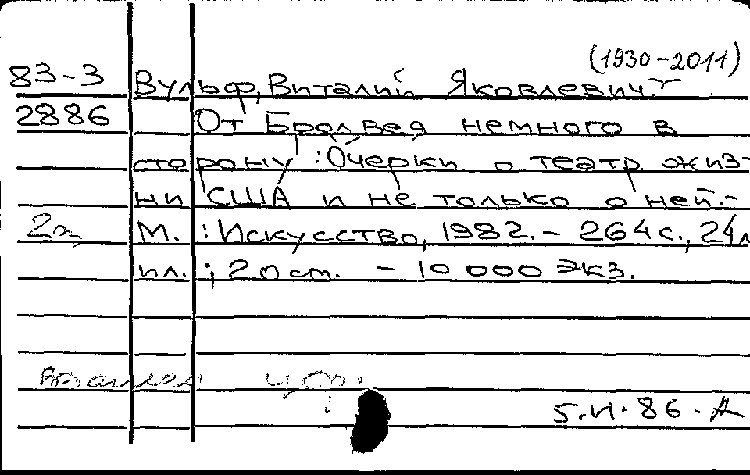 (1930-2011)
83-3 Вульф, Виталий Яковлевич.
2886 От Бродвея немного в
сторону : Очерки о театр. жиз-
ни США и не только о ней.-
2а М. : Искусство, 1982. - 264 с., 24 л.
ил. ; 20 см. - 10 000 экз.
5.VI.86.